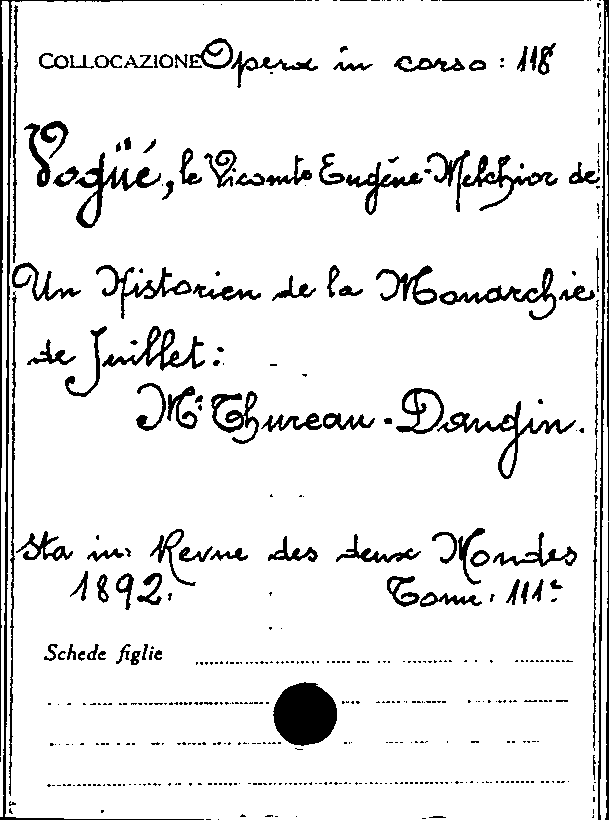 COLLOCAZIONE Opera in corso: 118
Vogüé, le Vicomte Eugène-Melchior de
Un Historien de la Monarchie
de Juillet:
Mr Thureau-Dangin.
Sta in: Revue des deux Mondes
1892. Tome: 111e
Schede figlie